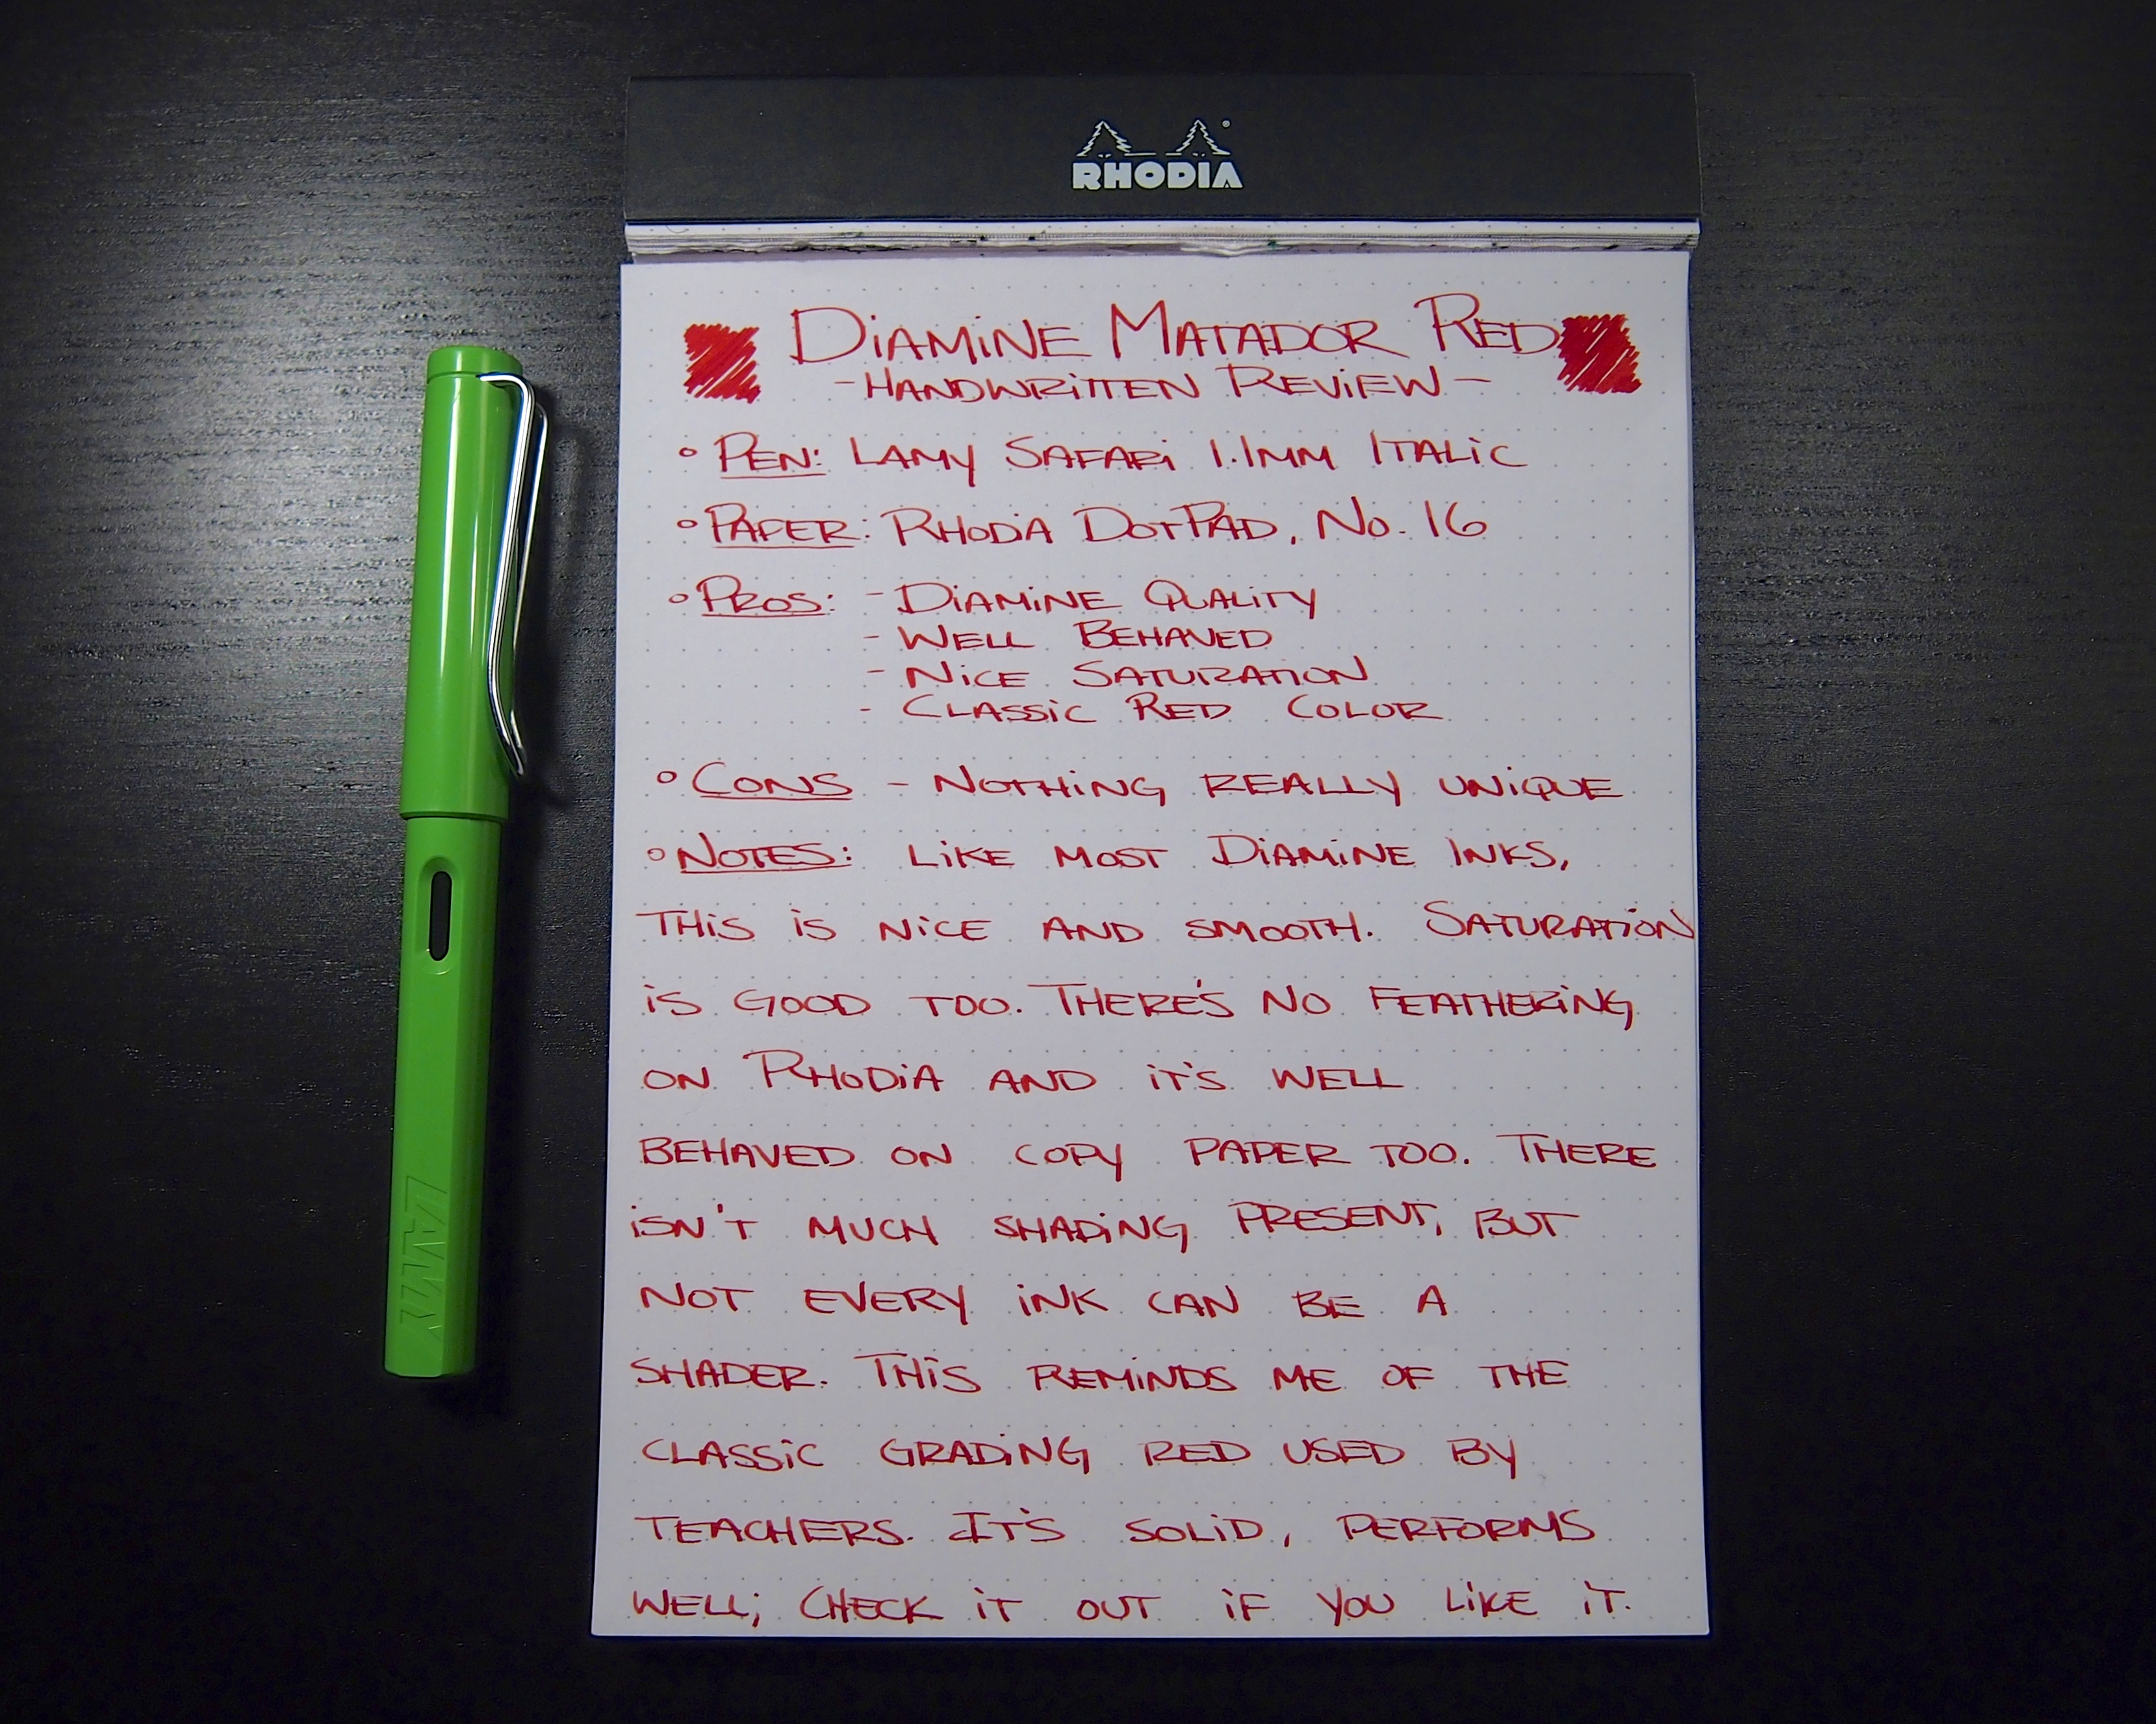 RHODIA
DiAMiNE MATADOR RED
-HANDWRiTTEN REViEW-
° PEN: LAMY SAFARi 1.1MM ITALiC
° PAPER: RHODiA DOTPAD, No. 16
° PROS: - DiAMiNE QUALiTY
- WELL BEHAVED
- NiCE SATURATION
- CLASSiC RED COLOR
° CONS - NOTHiNG REALLY UNiQUE
° NOTES: LiKE MOST DiAMiNE INKS,
THiS iS NiCE AND SMOOTH. SATURATiON
iS GOOD TOO. THERE'S NO FEATHERiNG
ON RHODiA AND iT'S WELL
BEHAVED ON COPY PAPER TOO. THERE
iSN'T MUCH SHADiNG PRESENT, BUT
NOT EVERY iNK CAN BE A
SHADER. THiS REMiNDS ME OF THE
CLASSiC GRADiNG RED USED BY
TEACHERS. IT'S SOLiD, PERFORMS
WELL; CHECK iT OUT iF YOU LiKE iT.
LAMY